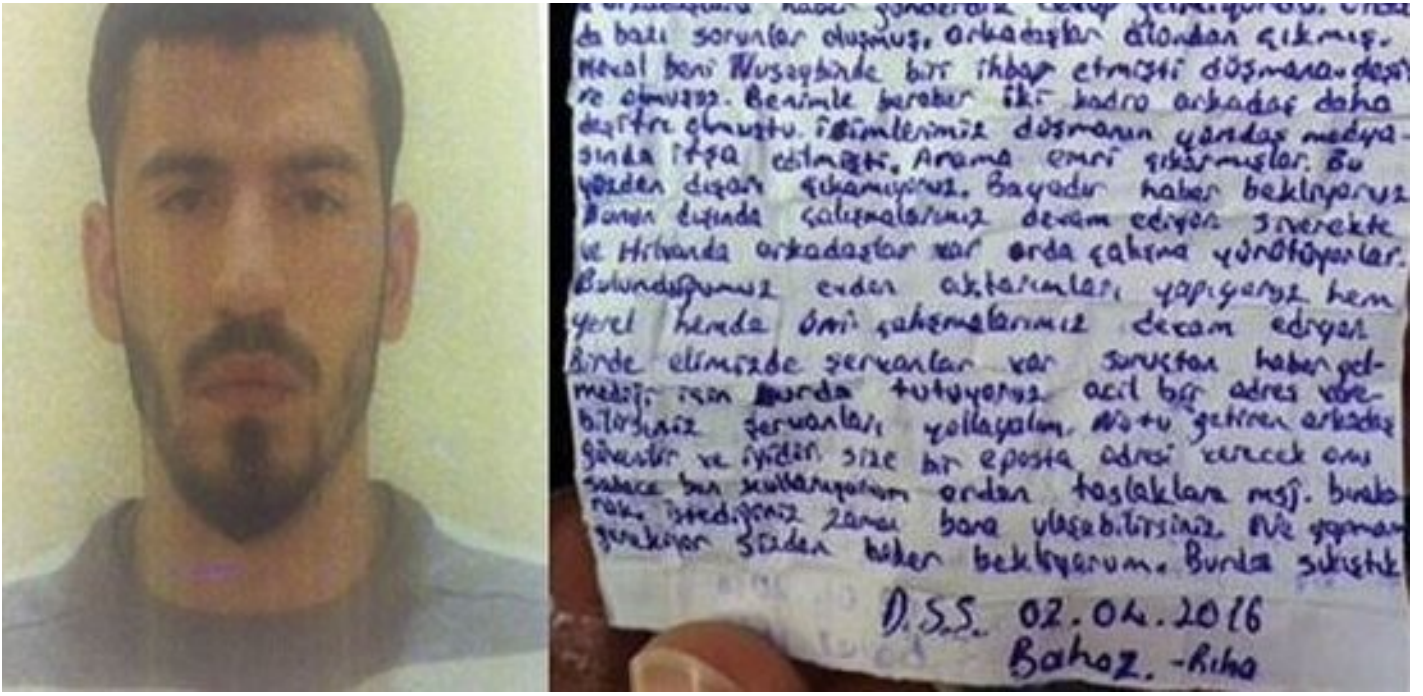 haber gönderdik cevap
da bazı sorunlar oluşmuş, arkadaşlar alandan çıkmış.
Heval beni Nusaybinde biri ihbar etmişti düşmana. deşif
re olmuşuz. Benimle beraber iki kadro arkadaş daha
deşifre olmuştu. isimlerimiz düşmanın yandaş medya-
sında ifşa edilmişti. Arama emri çıkarmışlar. Bu
yüzden dışarı çıkamıyoruz. Bayadır haber bekliyoruz
Bunun dışında çalışmalarımız devam ediyor siverekte
ve Hilvanda arkadaşlar var orda çalışma yürütüyorlar.
Bulunduğumuz evden aktarımları yapıyoruz hem
yerel hemde öni çalışmalarımız devam ediyor
Birde elimizde şervanlar var suruçtan haber gel-
mediği için burda tutuyoruz acil bir adres vere-
bilirsiniz şervanları yollayalım. Notu getiren arkadaş
güvenilir ve iyidir size bir eposta adresi verecek onu
sadece ben kullanıyorum ordan taslaklara msj. bıraka
rak. istediğiniz zaman bana ulaşabilirsiniz. Ne yapmam
gerekiyor sizden haber bekliyorum. Burda sıkıştık
D.S.S. 02.04.2016
Bahoz. -Riha